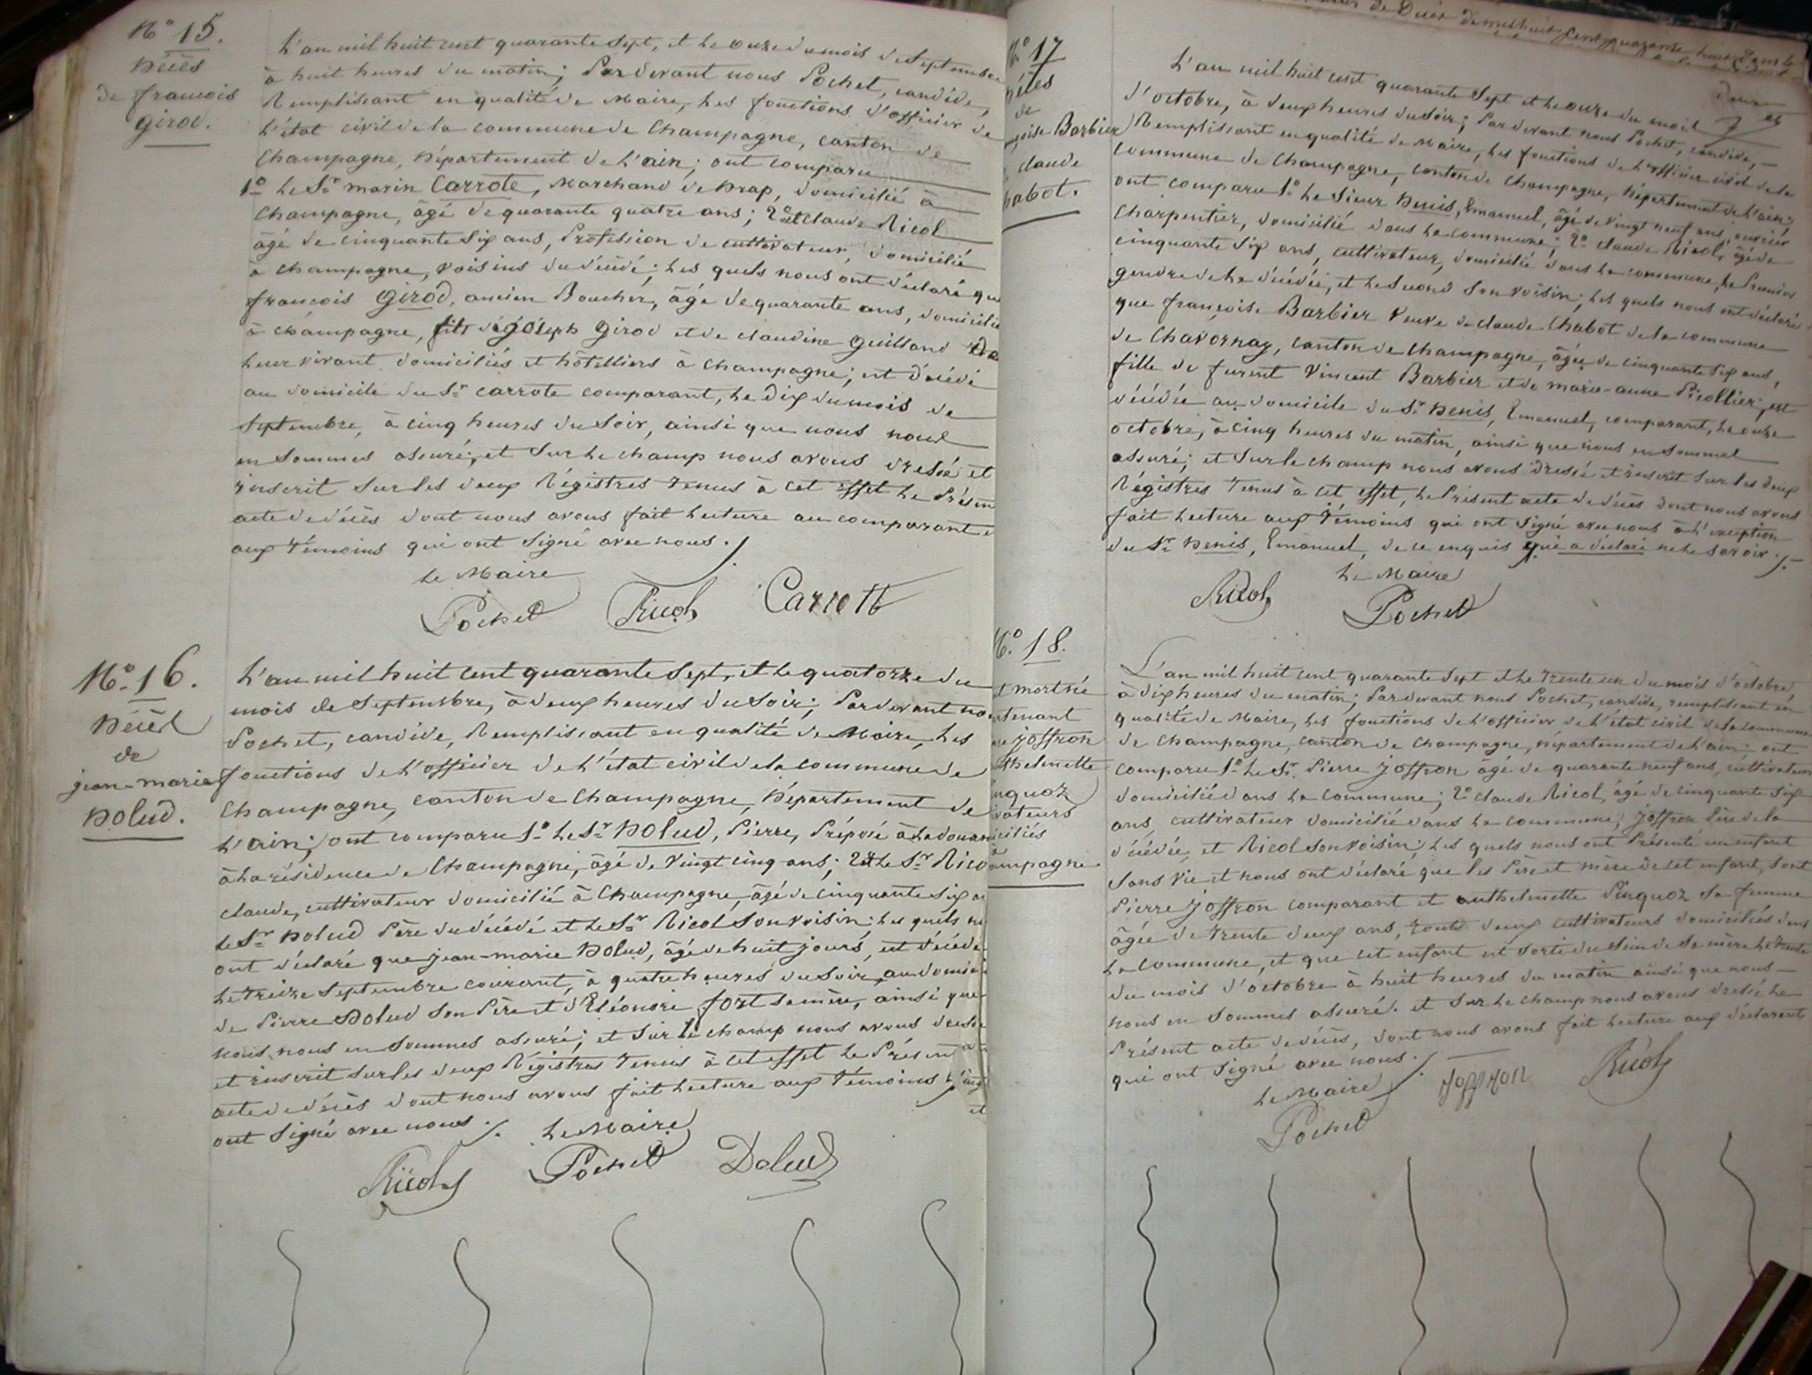 N.o 15.
Décès
de francois
girod.
L'an mil huit cent quarante sept, et le onze du mois de Septembre
à huit heures du matin; Par devant nous Pochet, candide,
Remplissant en qualité de Maire, les fonctions d'officier de
L'état civil de la commune de Champagne, canton de
Champagne, Département de L'ain; ont comparu
1.o Le Sr. marin Carrote, Marchand de Drap, domicilié à
Champagne, âgé de quarante quatre ans; 2.o et Claude Ricol
âgé de cinquante Six ans, Profession de cultivateur, domicilié
à Champagne, voisins du décédé; Les quels nous ont déclaré que
francois Girod, ancien Boucher, âgé de quarante ans, domicilié
à Champagne, fils de joseph Girod et de claudine guilland
Leur vivant domiciliés et hôtelliers à Champagne; est décédé
au domicile du Sr. carrote comparant, Le Dix du mois de
Septembre, à cinq heures du Soir, ainsi que nous nous
en Sommes assuré; et Sur Le champ nous avons dressé et
inscrit Sur les deux Régistres tenus à cet effet Le Présen
acte de décès dont nous avons fait Lecture au comparant e
aux témoins qui ont Signé avec nous./.
Le Maire
Pochet Ricol Carrott
N.o 16.
Décès
de
jean-marie
Dolud.
L'an mil huit cent quarante Sept, et Le quatorze du
mois de Septembre, à deux heures du Soir; Par devant no
Pochet, candide, Remplissant en qualité de Maire, Les
fonctions de L'officier de L'état civil de la commune de
Champagne, canton de Champagne, Département de
L'ain; ont comparu 1.o Le Sr. Dolud, Pierre, Préposé à La douan
à La résidence de Champagne, âgé de Vingt cinq ans; 2.o et Le Sr. Rico
claude, cultivateur domicilié à Champagne, âgé de cinquante Six a
Le Sr. Dolud Père du décédé et Le Sr. Ricol Son voisin; Les quels n
ont déclaré que jean-marie Dolud, âgé de huit jours, est décédé
Le treize Septembre courant, à quatre heures du Soir, au domic
de Pierre Dolud Son Père et d'Eléonore fort Sa mère, ainsi que
nous nous en Sommes assuré; et Sur Le champ nous avons dressé
et inscrit Sur les deux Régistres tenus à cet effet Le Présent
acte de décès dont nous avons fait Lecture aux témoins
ont Signé avec nous./.
Le Maire
Ricol Pochet Dolud
de Décès de mil huit Cent quarante
N.o 17
Décès
de
Barbier
claude
habot.
L'an mil huit cent quarante Sept et Le onze du mois
d'octobre, à deux heures du Soir; Par devant nous Pochet, candide,
Remplissant en qualité de Maire, Les fonctions de L'officier civil de la
commune de Champagne, canton de Champagne, Département de L'ain;
ont comparu 1.o Le Sieur Denis, Emanuel, âgé de vingt neuf ans, ouvrier
Charpentier, domicilié dans La commune; 2.o claude Ricol, âgé de
cinquante Six ans, cultivateur, domicilié dans La commune, Le Premier
gendre de La décédée, et Le Second Son voisin; Les quels nous ont déclaré
que françoise Barbier veuve de claude Chabot de la commune
de Chavornay, canton de Champagne, âgée de cinquante Six ans,
fille de furent Vincent Barbier et de marie-anne Picollier, est
décédée au domicile du Sr. Denis, Emanuel, comparant, Le onze
octobre, à cinq heures du matin, ainsi que nous en Sommes
assuré; et Sur Le champ nous avons dressé et inscrit Sur les deux
Régistres tenus à cet effet, Le Présent acte de décès dont nous avons
fait Lecture aux témoins qui ont Signé avec nous à L'exception
du Sr. Denis, Emanuel, de ce enquis qui a déclaré ne Le Savoir./.
Le Maire
Ricol Pochet
N.o 18.
mort né
tenant
joffron
thelmette
quoz
vateurs
ciliés
à
ampagne
L'an mil huit cent quarante Sept et Le trente un du mois d'octobre
à Dix heures du matin; Par devant nous Pochet, candide, remplissant en
qualité de Maire, Les fonctions de L'officier de L'état civil de la commune
de Champagne, canton de Champagne, Département de L'ain; ont
comparu 1.o Le Sr. Pierre Joffron âgé de quarante neuf ans, cultivateur
domicilié dans La commune; 2.o claude Ricol, âgé de cinquante Six
ans, cultivateur domicilié dans La commune; Joffron Père de la
décédée, et Ricol Son voisin; Les quels nous ont Présenté un enfant
Sans Vie et nous ont déclaré que Les Père et mère de cet enfant, Sont
Pierre Joffron comparant et anthelmette Puquoz Sa femme
âgée de trente deux ans, tous deux cultivateurs domiciliés dans
La commune, et que cet enfant est Sorti du Sein de Sa mère Le trente
du mois d'octobre à huit heures du matin ainsi que nous
nous en Sommes assuré. et Sur Le champ nous avons dressé Le
Présent acte de décès, dont nous avons fait Lecture aux déclarant
qui ont Signé avec nous./.
Le Maire
Pochet Joffron Ricol